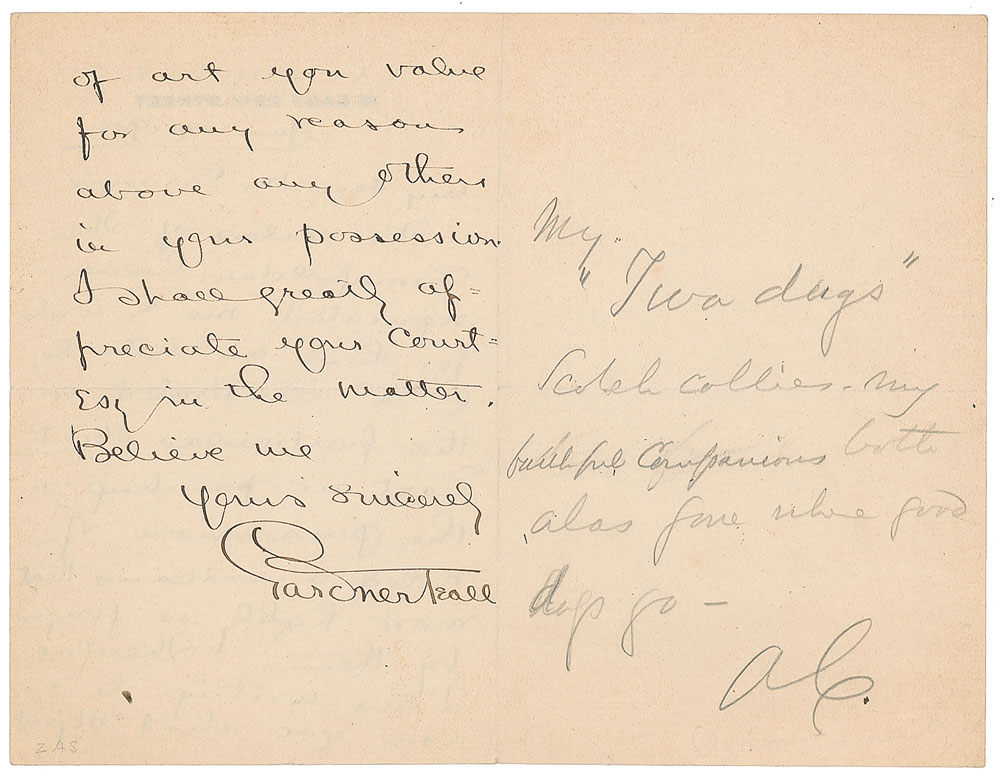 of art you value
for any reason
above any others
in your possession.
I shall greatly ap=
preciate your Court=
esy in the matter.
Believe me
Yours sincerely
Gardner Teall
My
"Two dogs"
Scotch collies - my
faithful Companions both
alas gone where good
dogs go -
AC.
ZAS